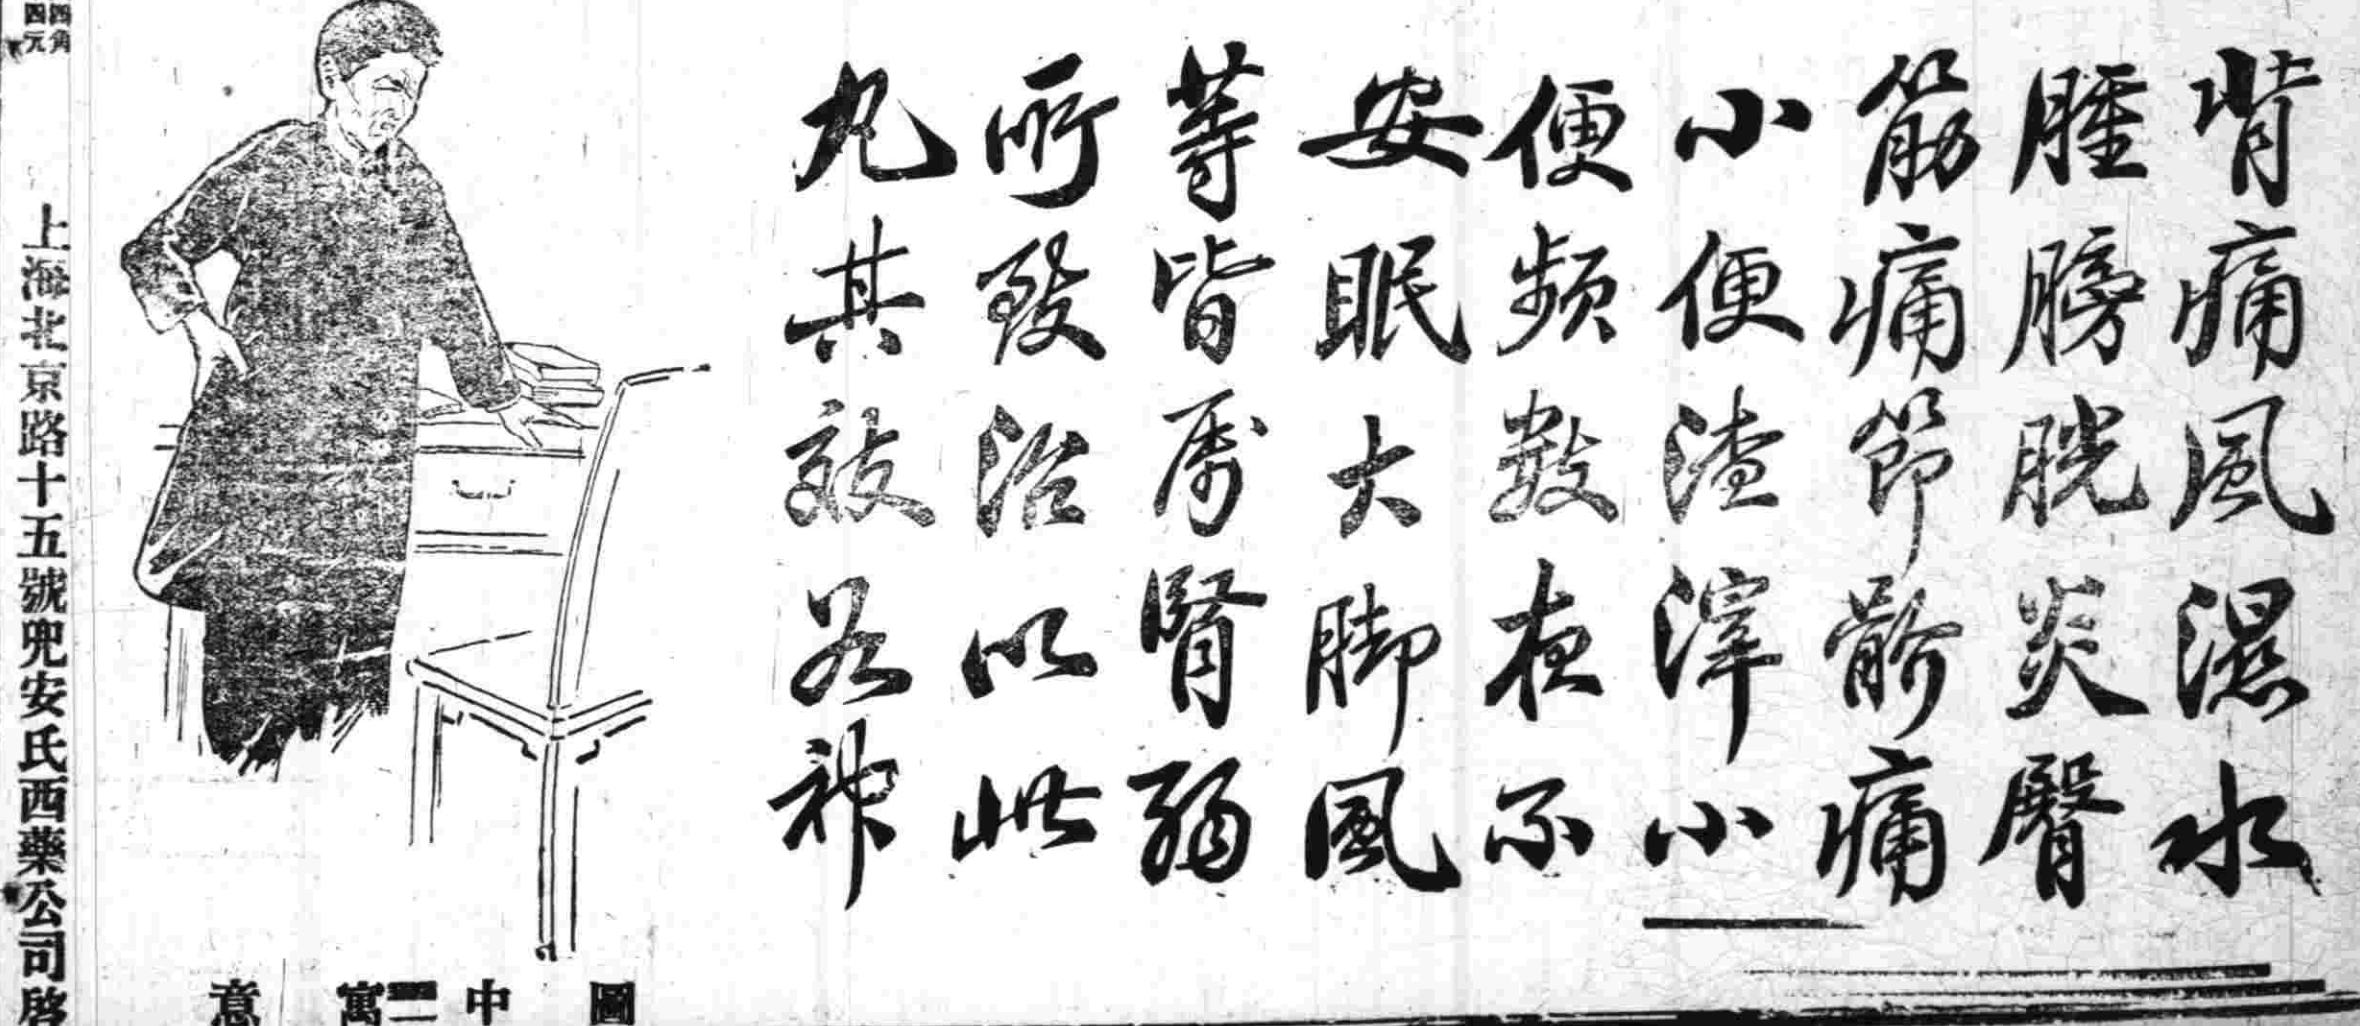 背痛風濕水
腫膀胱炎臀
筋痛節骱痛
小便渣滓小
便頻數夜不
安眠大脚風
等皆爲腎弱
所致治以此
丸其效若神
圖中寓意
四角
四元
上海北京路十五號兜安氏西藥公司啓